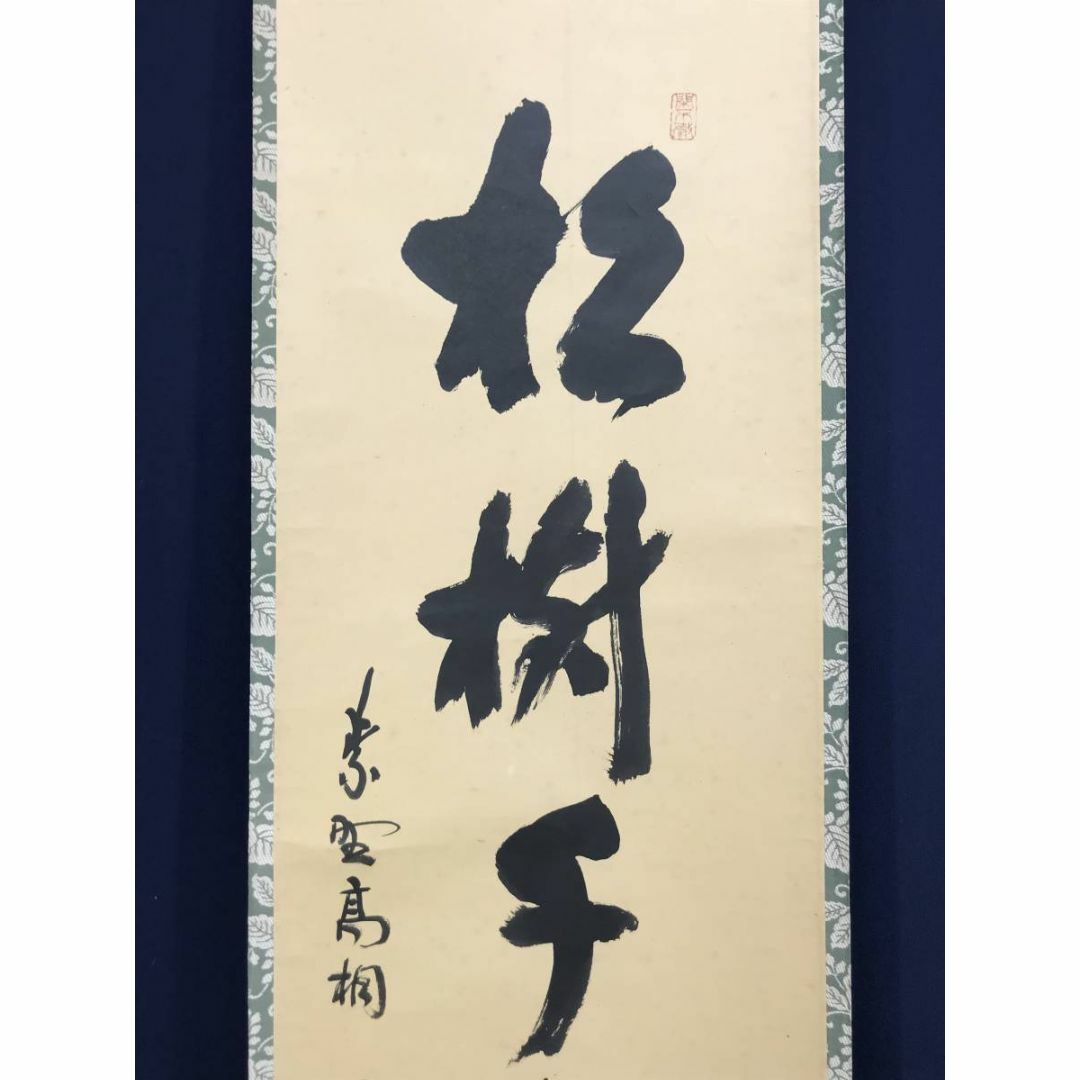 松樹千
紫野高桐